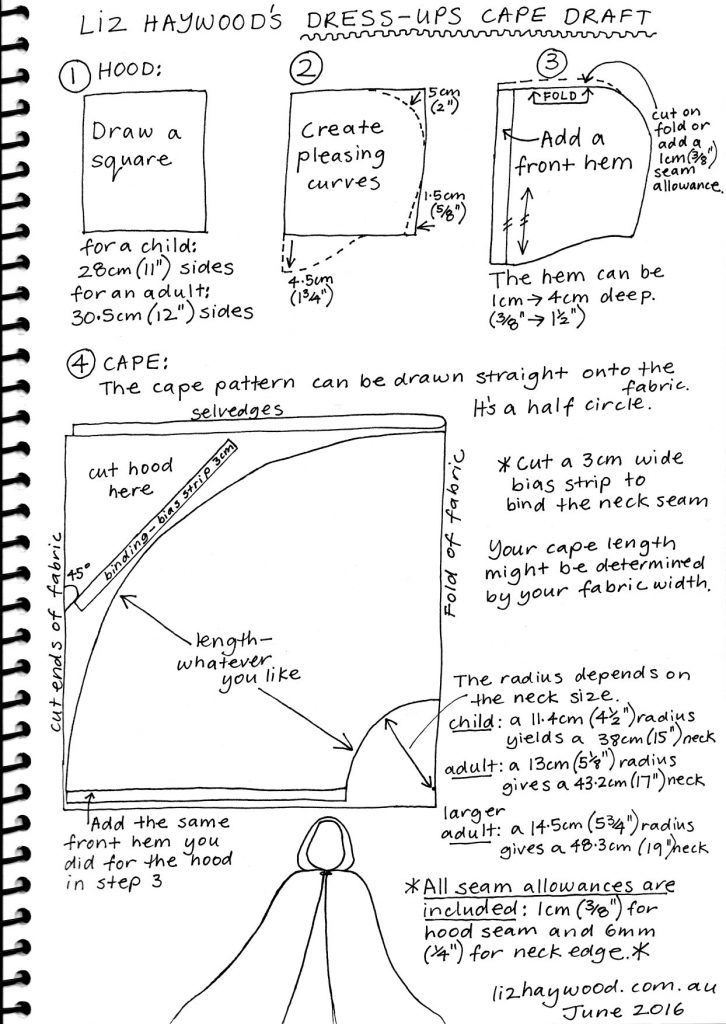 LIZ HAYWOOD'S DRESS-UPS CAPE DRAFT
1 HOOD:
Draw a
square
for a child:
28cm (11") sides
for an adult:
30.5cm (12") sides
2
5cm
(2")
Create
pleasing
curves
1.5cm
(5/8")
4.5cm
(1¾")
3
FOLD
Add a
front hem
cut on
fold or
add a
1cm (3/8")
seam
allowance.
The hem can be
1cm → 4cm deep.
(3/8" → 1½")
4 CAPE:
The cape pattern can be drawn straight onto the
fabric.
It's a half circle.
selvedges
cut hood
here
binding - bias strip 3cm
45°
cut ends of fabric
Fold of fabric
length-
whatever
you like
*Cut a 3cm wide
bias strip to
bind the neck seam
Your cape length
might be determined
by your fabric width.
The radius depends on
the neck size.
child: a 11.4cm (4½") radius
yields a 38cm (15") neck
adult: a 13cm (5⅛") radius
gives a 43.2cm (17") neck
larger
adult: a 14.5cm (5¾") radius
gives a 48.3cm (19") neck
Add the same
front hem you
did for the hood
in step 3
*All seam allowances are
included: 1cm (3/8") for
hood seam and 6mm
(¼") for neck edge.*
lizhaywood.com.au
June 2016